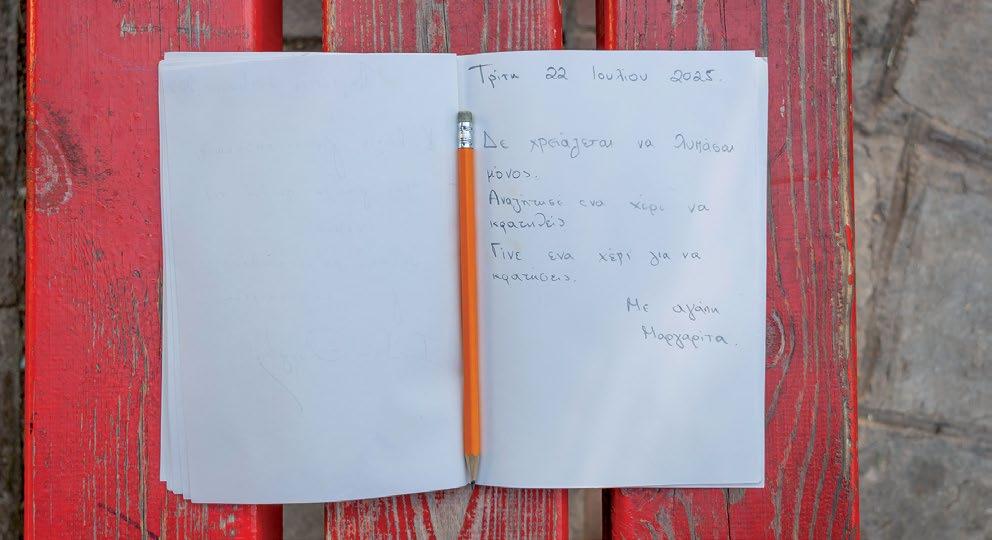 Τρίτη 22 Ιουλίου 2025.
Δε χρειάζεται να λυπάσαι
μόνος.
Αναζήτησε ενα χέρι να
κρατηθείς
Γίνε ενα χέρι για να
κρατησεις.
Με αγάπη
Μαργαρίτα.